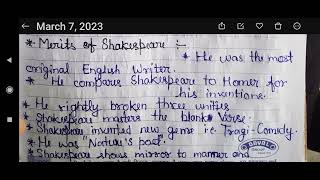 March 7, 2023
* Merits of Shakespeare :-
* He was the most
original English Writer.
* He compares Shakespeare to Homer for
his inventions.
* He rightly broken three unities
* Shakespeare masters the blank Verse.
* Shakespeare invented new genre i.e. Tragi-Comedy.
* He was "Nature's poet".
* Shakespeare shows mirror to manner and